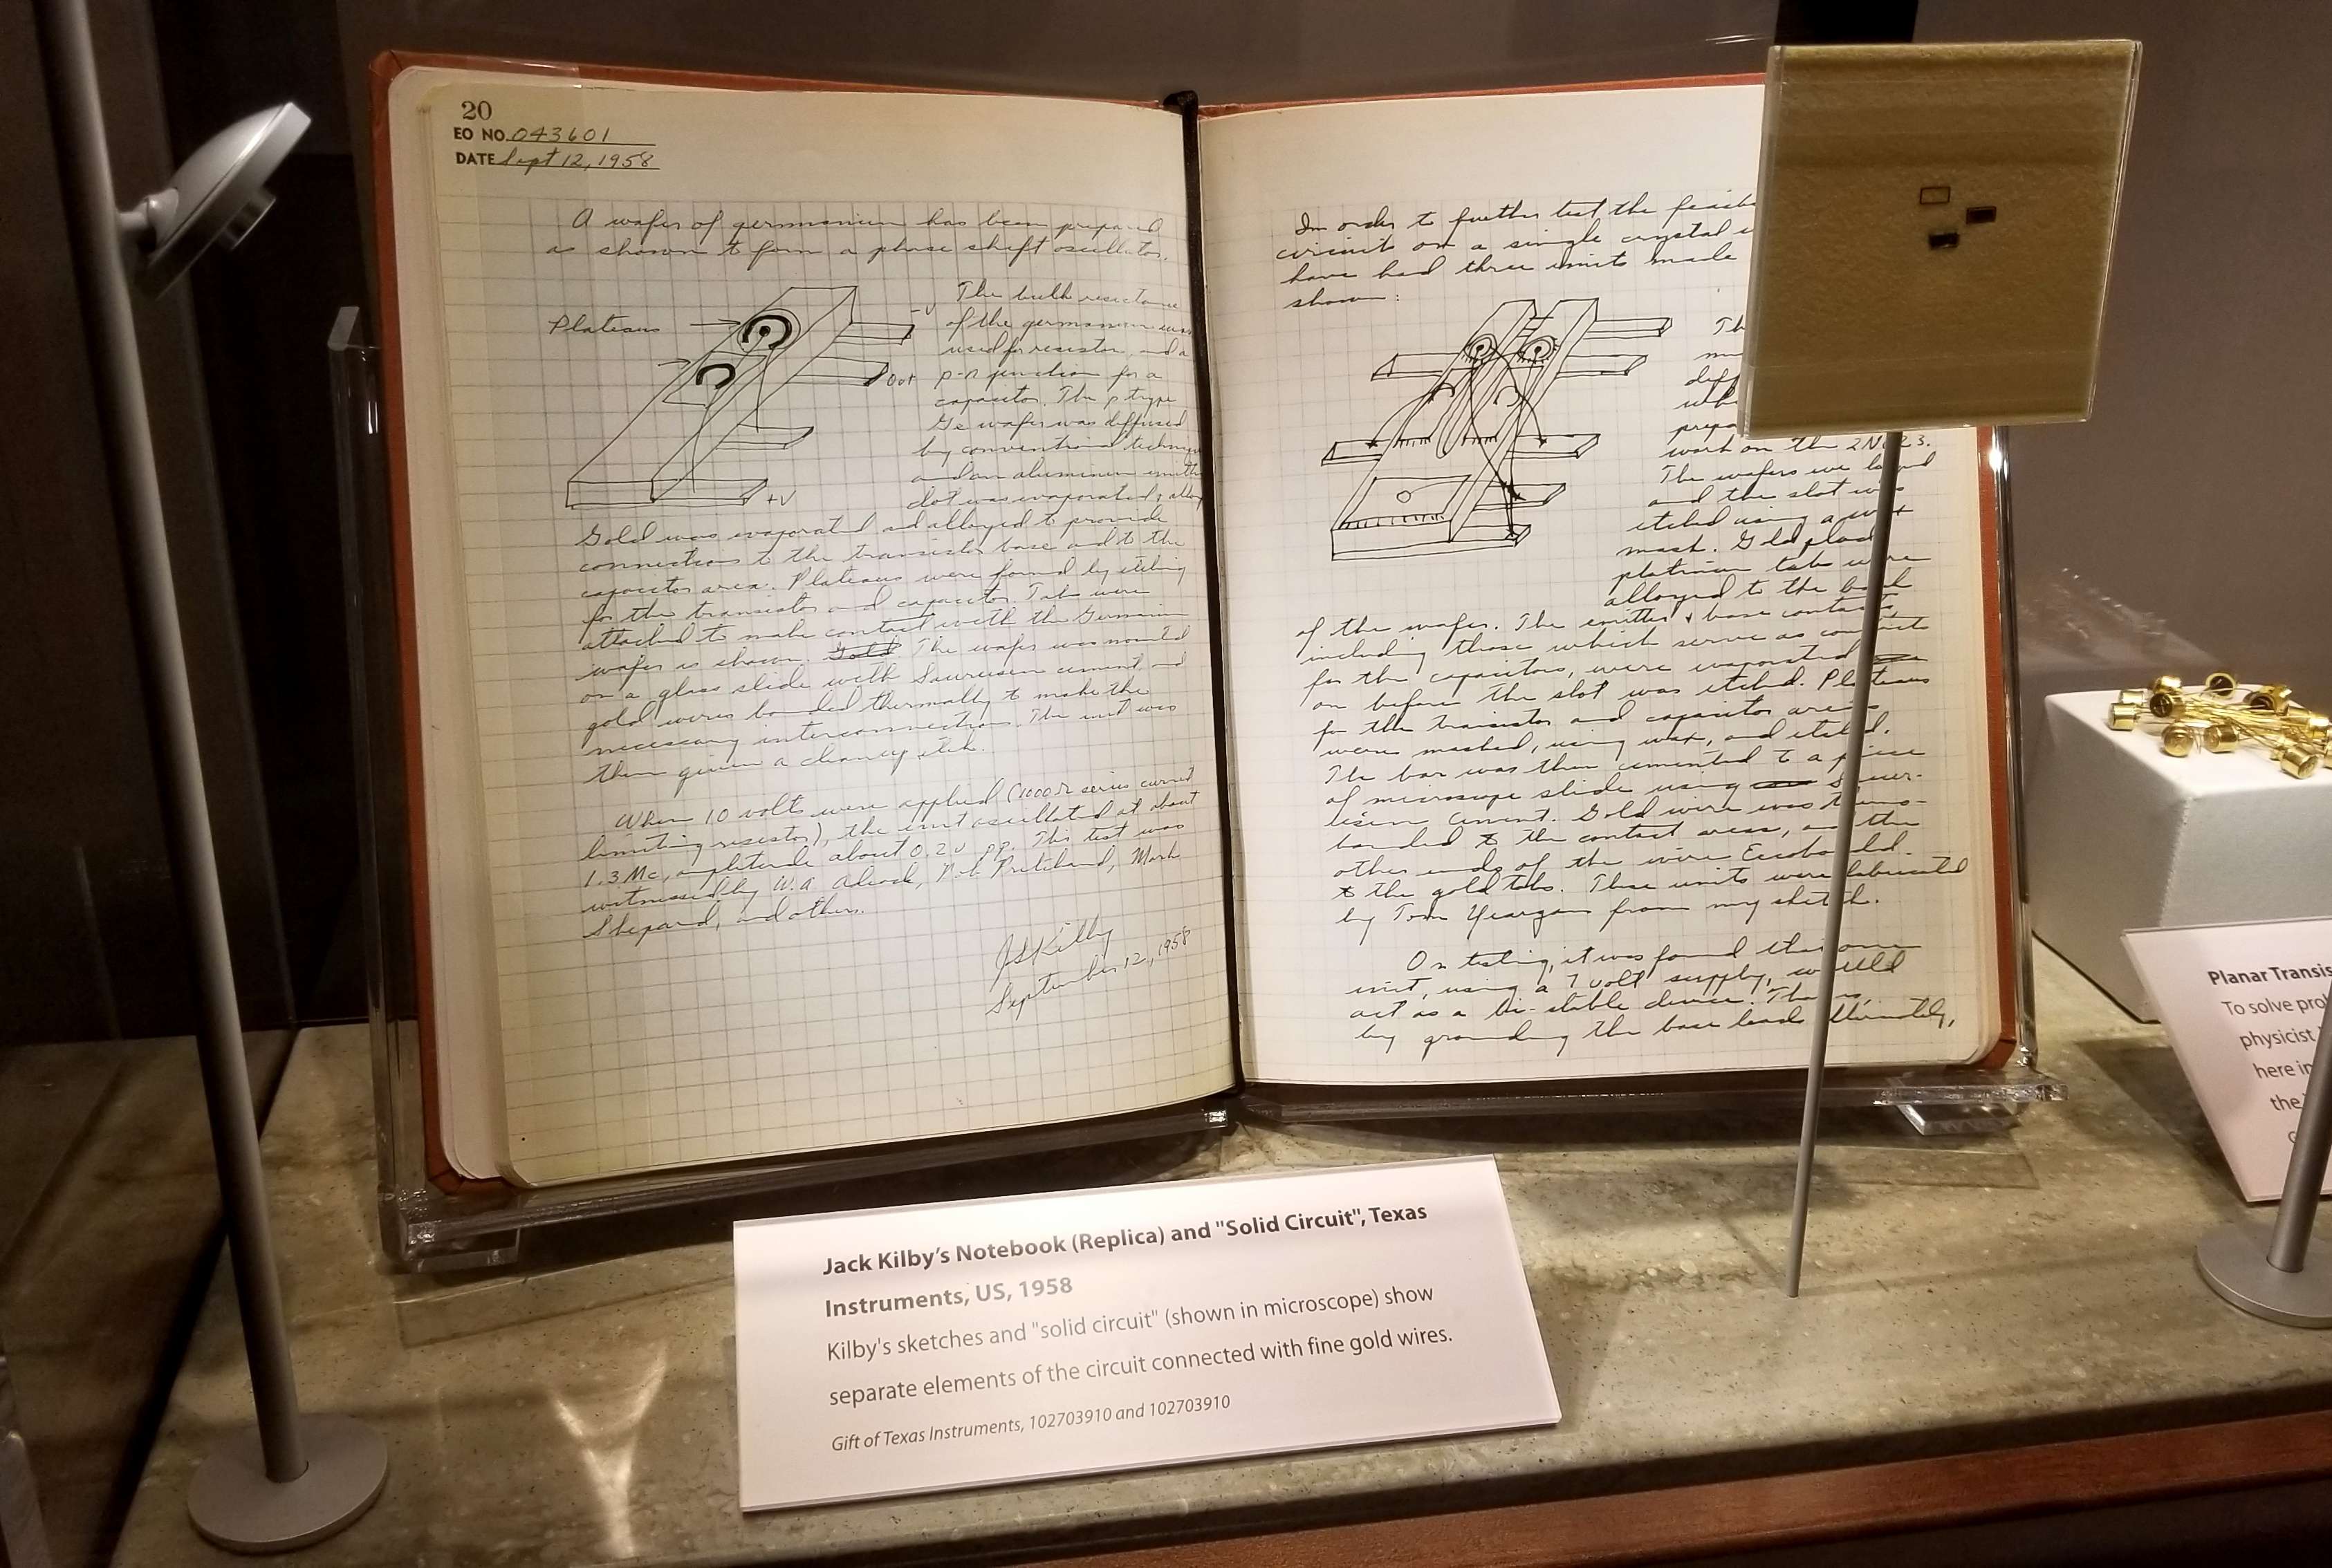 20
EO NO. 043601
DATE Sept 12, 1958
A wafer of germanium has been prepared
as shown to form a phase shift oscillator.
Plateaus
-V
Out
+V
The bulk resistance
of the germanium was
used for resistor, and a
p-n junction for a
capacitor. The p type
Ge wafer was diffused
by conventional techniques
and an aluminum emitter
dot was evaporated & alloy
Gold was evaporated and alloyed to provide
connections to the transistor base and to the
capacitor area. Plateaus were formed by etching
for the transistor and capacitor. Tabs were
attached to make contact with the Germanium
wafer as shown. Gold. The wafer was mounted
on a glass slide with Sauereisen cement and
gold wires bonded thermally to make the
necessary interconnections. The unit was
then given a cleanup etch.
When 10 volts were applied (1000 Ω series current
limiting resistor), the unit oscillated at about
1.3 Mc, amplitude about 0.2v pp. This test was
witnessed by W.A. Adcock, Pritchard, Mark
Shepard, and others.
JSKilby
September 12, 1958
In order to further test the
circuits on a single crystal
have had three units made
shown:
Th
diff
prepa
work on the 2N 23.
The wafers were lapped
and the slot was
etched using a wax
mask. Gold plated
platinum tabs were
alloyed to the back
of the wafer. The emitter & base contacts,
including those which serve as contacts
for the capacitors, were evaporated
on before the slot was etched. Plateaus
for the transistor and capacitor areas
were masked, using wax, and etched.
The bar was then cemented to a piece
of microscope slide using Sauer-
eisen cement. Gold wire was thermo-
bonded to the contact areas, and the
other ends of the wire
to the gold tabs. These units were fabricated
by Tom Yeargan from my sketch.
On testing, it was found that one
unit, using a 7 volt supply, would
act as a bi-stable device. That is,
by grounding the base leads alternately,
Jack Kilby's Notebook (Replica) and "Solid Circuit", Texas
Instruments, US, 1958
Kilby's sketches and "solid circuit" (shown in microscope) show
separate elements of the circuit connected with fine gold wires.
Gift of Texas Instruments, 102703910 and 102703910
Planar Transis
To solve pro
physicist
here in
the